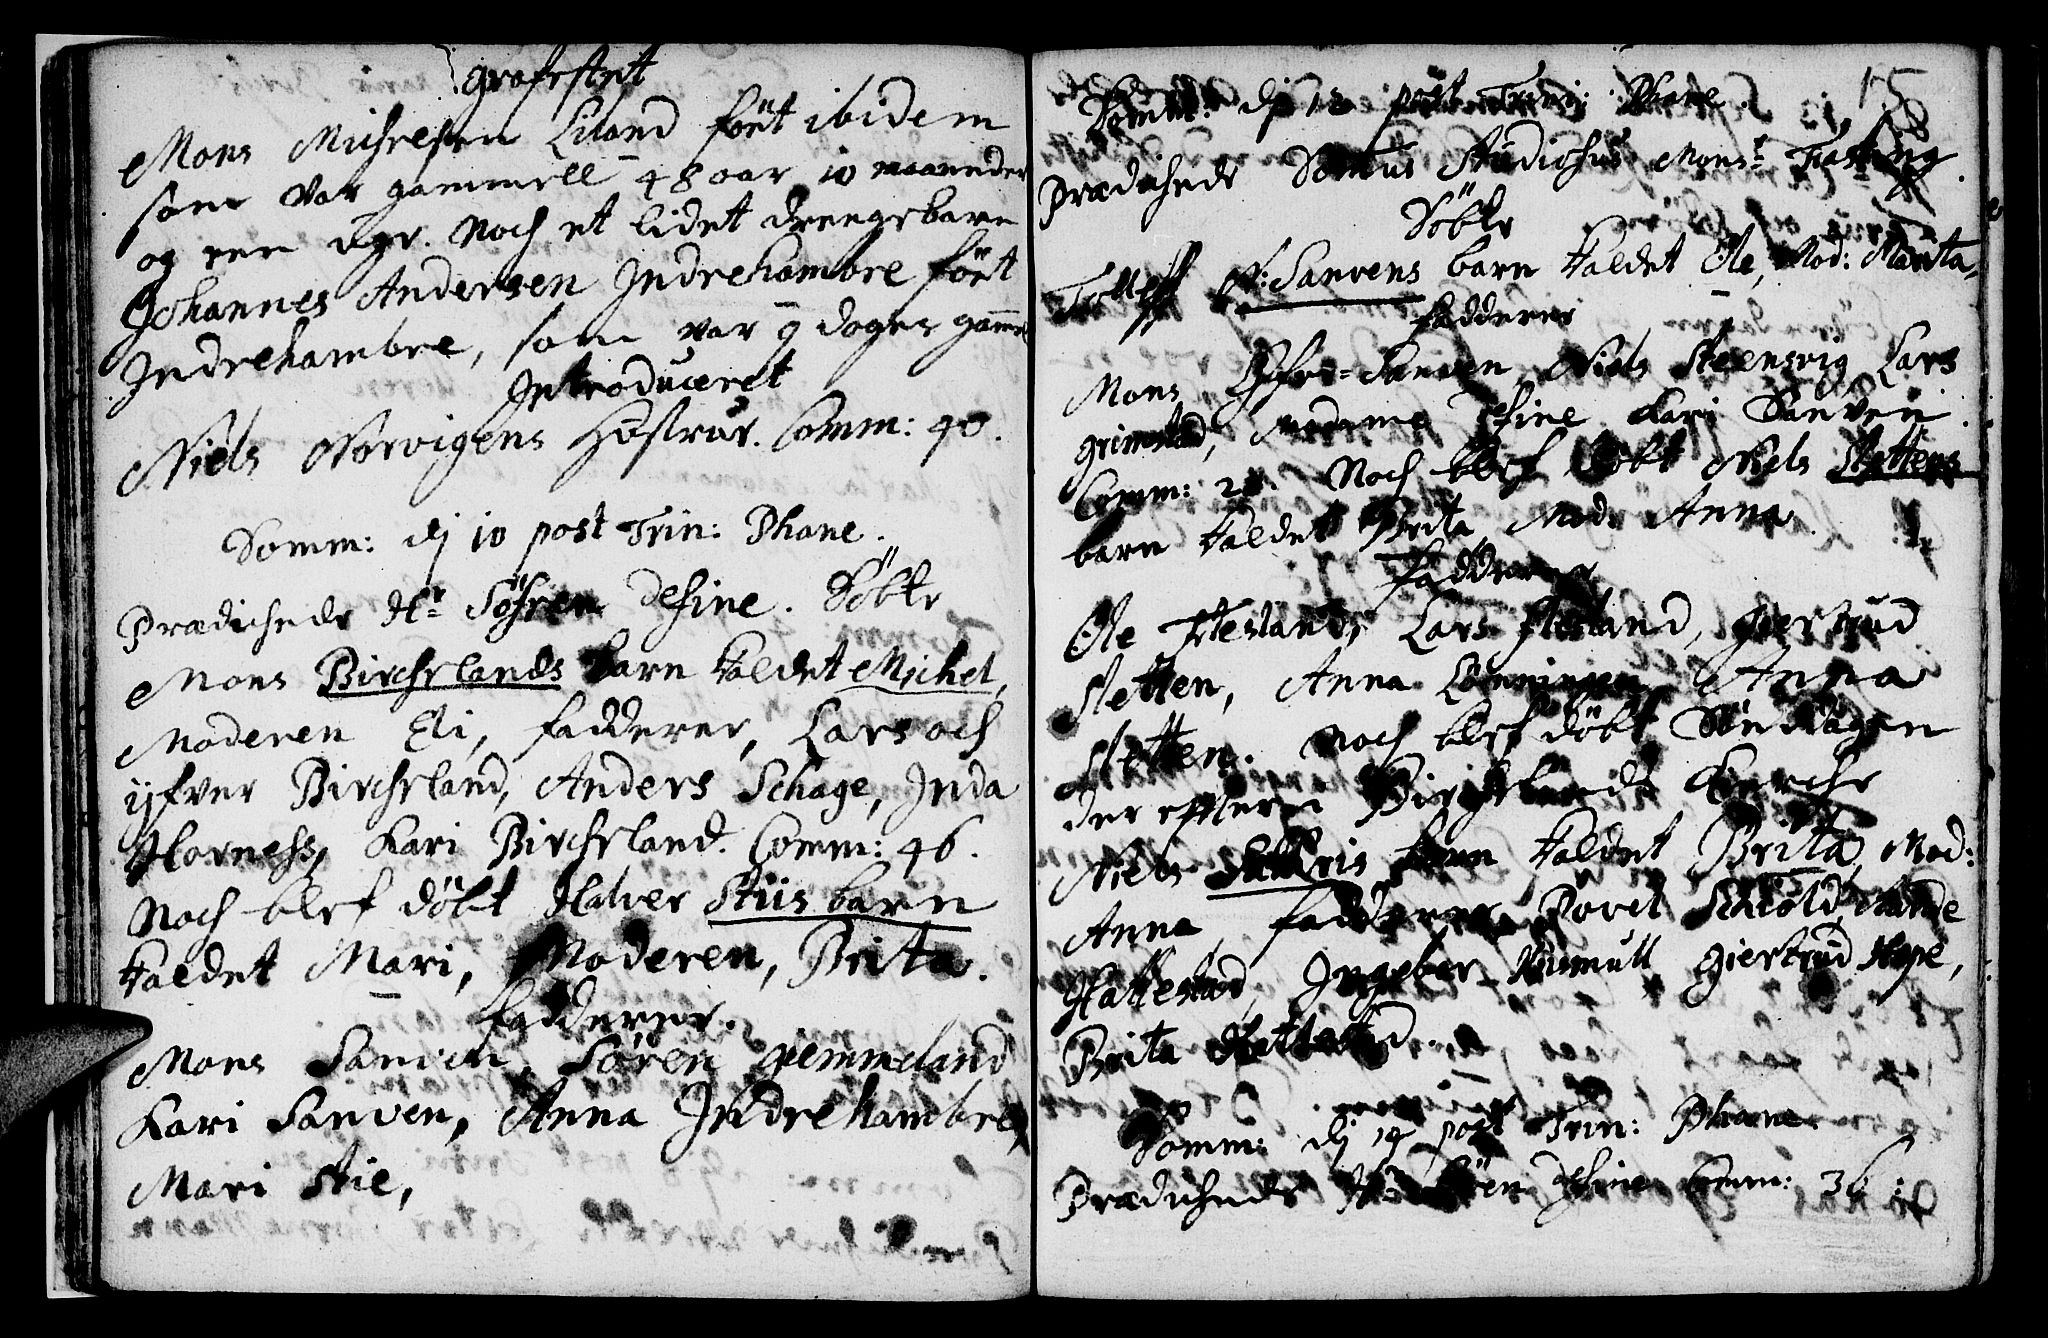 grafestet
Mons Michelsen Liland föet ibidem
som var gammell 48 aar 10 maaneder
og een uge. Noch et lidet drengebarn
Johannes Andersen Indrehambre föet
Indrehambre, som var 9 dages gamel
Introduceret
Niels Norvigens Hustrue. Comm: 40.
Domm: dj 10 post Trin: Phane.
Prædichede Hr Söhren Dehine. Döbte
Mons Birchelands barn kaldet Michel,
Moderen Eli, fadderer, Lars och
yfver Bircheland, Anders Schage, Inda
Harness, Kari Bircheland. Comm: 46.
Noch blef döbt Halver Stiis barn
kaldet Mari, Moderen, Brita.
fadderer.
Mons Sanven, Sören giemmeland
Kari Sanven, Anna Indrehambre,
Mari Stie,
15
Domm: dj 13 post Trin: Phane.
Prædichede Domus Studiosus Monsr Fasting.
Döbte
Tollef Sanvens barn kaldet Ole, Mod: Marita,
fadderer
Mons Sanven, Niels Steensvig, Lars
grimstad, Madame Dehine Kari Sanven.
Comm: 28. Noch blef döbt Niels Slettens
barn kaldet Brita, Mod: Anna.
fadderer
Ole Flesland, Lars flesland, giertrud
Sletten, Anna Lönningen, Anna
Sletten. Noch blef döbt Söndagen
der efter i Birchelands Kirche
Niels barn kaldet Brita, Mod:
Anna, fadderer, Povel Schiold,
Hattestad, Ingebor giertrud Hope,
Brita Hattestad.
Domm: dj 14 post Trin: Phane.
Prædichede Hr Sören Dehine Comm: 36